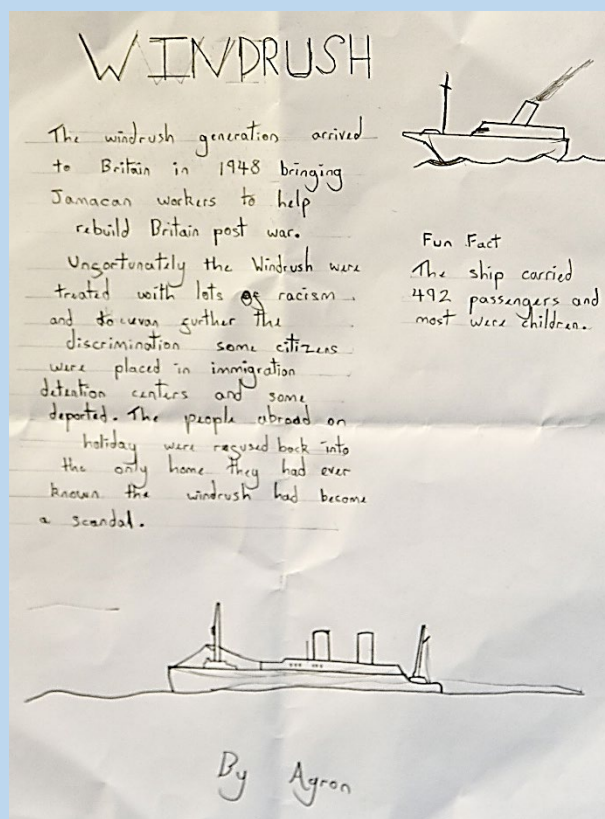 WINDRUSH
The windrush generation arrived
to Britain in 1948 bringing
Jamacan workers to help
rebuild Britain post war.
Ungortunately the Windrush were
treated with lots og racism.
and to
gurther the
discrimination some citizens
were placed in immigration
detention centers and some
deported. The people abroad on
holiday were regused back into
the only home they had ever
known the windrush had become
a scandal.
Fun Fact
The ship carried
492 passengers and
most were children.
By Agron